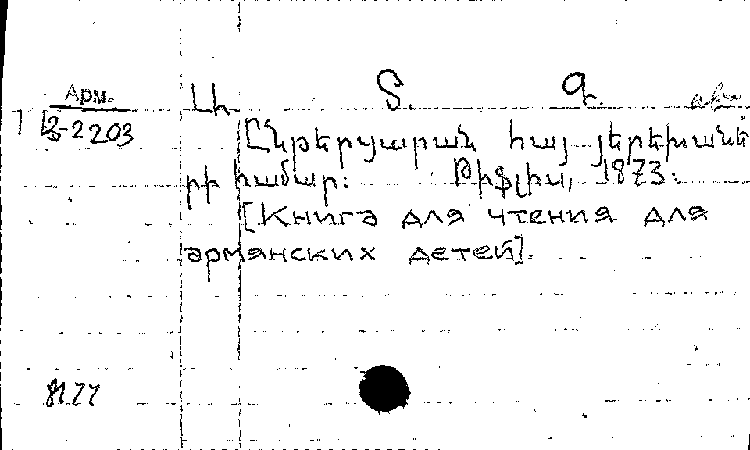 Арм.
Ա. Տ. Գ.
12-2203
Ընթերցարան հայ երեխանե
րի համար: Թիֆլիս, 1873:
[Книга для чтения для
армянских детей].